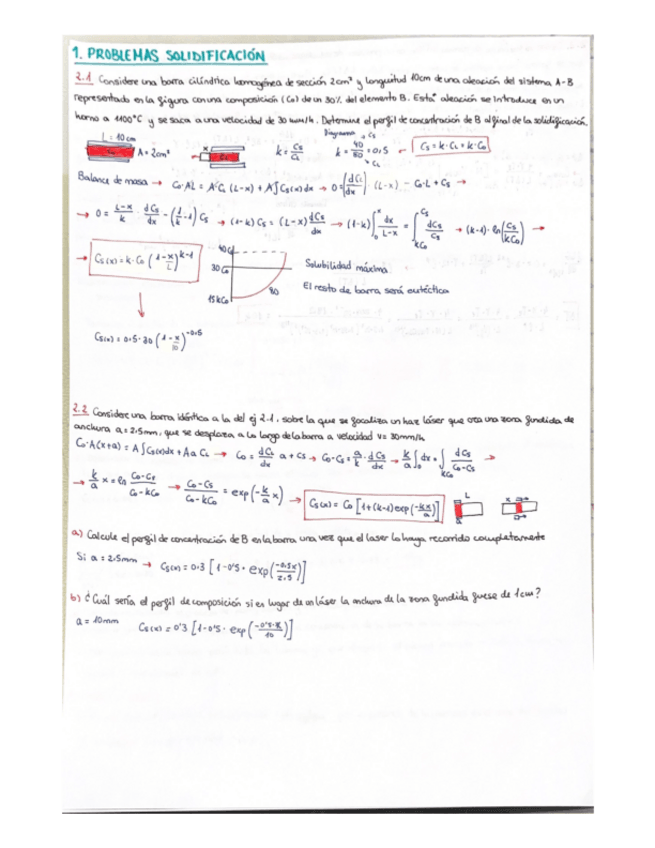 1. PROBLEMAS SOLIDIFICACIÓN
2.1 Considere una barra cilíndrica homogénea de sección 2cm² y longuitud 10cm de una aleación del sistema A-B
representado en la figura con una composición (Co) de un 30% del elemento B. Esta aleación se introduce en un
horno a 1100°C y se saca a una velocidad de 30 mm/h. Determine el perfil de concentración de B al final de la solidificación.
L = 10cm A = 2cm² x k = Cs/CL Diagrama k = 40/80 = 0'5 → Cs → CL Cs = k·CL = k·Co
Balance de masa → Co·AL = A·CL (L-x) + A∫Cs(x)dx → 0 = (dCL/dx)·(L-x) - Co·L + Cs →
→ 0 = (L-x)/k · dCs/dx - (1/k - 1) Cs → (1-k) Cs = (L-x) dCs/dx → (1-k) ∫₀ˣ dx/(L-x) = ∫kCo^Cs dCs/Cs → (k-1)·ln(Cs/kCo) →
→ Cs(x) = k·Co (1-x/L)^k-1
40Cl
30Co
15kCo
80
Solubilidad máxima
El resto de barra será eutéctica
Cs(x) = 0'5·30 (1-x/10)^-0'5
2.2 Considere una barra idéntica a la del ej 2.1, sobre la que se focaliza un haz láser que crea una zona fundida de
anchura a = 2.5mm, que se desplaza a lo largo de la barra a velocidad v = 30mm/h
Co·A(x+a) = A∫Cs(x)dx + AaCL → Co = dCL/dx a + Cs → Co-Cs = a/k · dCs/dx → k/a ∫₀ˣ dx = ∫kCo^Cs dCs/(Co-Cs) →
→ k/a x = ln (Co-Cs)/(Co-kCo) → (Co-Cs)/(Co-kCo) = exp(-k/a x) → Cs(x) = Co [1+(k-1)exp(-kx/a)] L a x
a) Calcule el perfil de concentración de B en la barra una vez que el laser la haya recorrido completamente
Si a = 2.5mm → Cs(x) = 0.3 [1-0'5·exp(-0.5x/2.5)]
b) ¿Cuál sería el perfil de composición si en lugar de un láser la anchura de la zona fundida fuese de 1cm?
a = 10mm Cs(x) = 0'3 [1-0'5·exp(-0'5·x/10)]